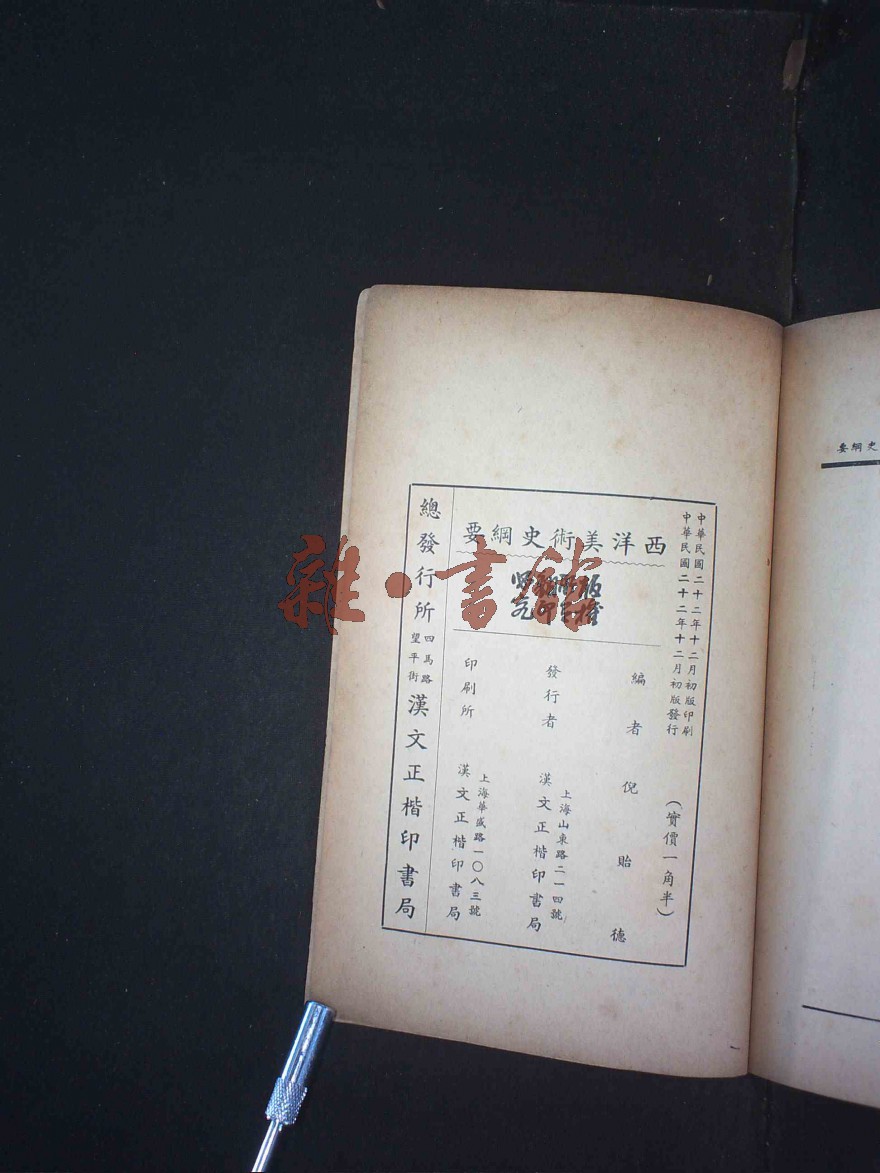 中華民國二十二年十二月初版印刷
中華民國二十二年十二月初版發行
(實價一角半)
西洋美術史綱要
版權
編者 倪貽德
發行者 上海山東路二一四號
漢文正楷印書局
印刷所 上海華盛路一〇八三號
漢文正楷印書局
總發行所 四馬路
望平街 漢文正楷印書局
史綱要
雜·書館